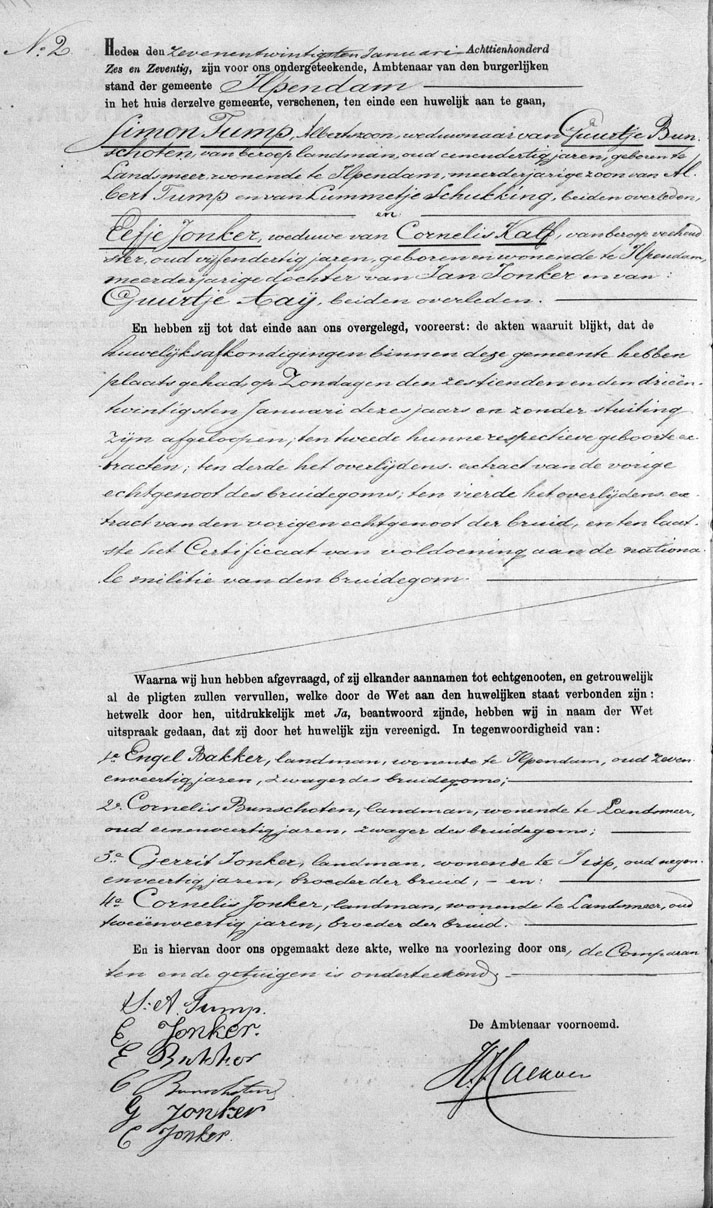 No. 2
Heden den zevenentwintigsten Januari Achttienhonderd
Zes en Zeventig, zijn voor ons ondergeteekende, Ambtenaar van den burgerlijken
stand der gemeente Ilpendam
in het huis derzelve gemeente, verschenen, ten einde een huwelijk aan te gaan,
Simon Tump, Albertszoon, weduwnaar van Guurtje Bun-
schoten, van beroep landman, oud eenendertig jaren, geboren te
Landsmeer, wonende te Ilpendam, meerderjarige zoon van Al-
bert Tump en van Lummetje Schukking, beiden overleden,
en
Eefje Jonker, weduwe van Cornelis Kalf, van beroep veehoud-
ster, oud vijfendertig jaren, geboren en wonende te Ilpendam,
meerderjarige dochter van Jan Jonker en van:
Guurtje Aaij, beiden overleden.
En hebben zij tot dat einde aan ons overgelegd, vooreerst: de akten waaruit blijkt, dat de
huwelijksafkondigingen binnen deze gemeente hebben
plaats gehad, op Zondagen den zestienden en den drieën-
twintigsten Januari dezes jaars en zonder stuiting
zijn afgeloopen; ten tweede hunne respectieve geboorte ex-
tracten; ten derde het overlijdens-extract van de vorige
echtgenoot des bruidegoms; ten vierde het overlijdens ex-
tract van den vorigen echtgenoot der bruid, en ten laat-
ste het Certificaat van voldoening aan de nationa-
le militie van den bruidegom.
Waarna wij hun hebben afgevraagd, of zij elkander aannamen tot echtgenooten, en getrouwelijk
al de pligten zullen vervullen, welke door de Wet aan den huwelijken staat verbonden zijn:
hetwelk door hen, uitdrukkelijk met Ja, beantwoord zijnde, hebben wij in naam der Wet
uitspraak gedaan, dat zij door het huwelijk zijn vereenigd. In tegenwoordigheid van:
1e Engel Bakker, landman, wonende te Ilpendam, oud zeven-
enveertig jaren, zwager des bruidegoms;
2e Cornelis Bunschoten, landman, wonende te Landsmeer,
oud eenenveertig jaren, zwager des bruidegoms;
3e Gerrit Jonker, landman, wonende te Jisp, oud negen-
enveertig jaren, broeder der bruid, - en:
4e Cornelis Jonker, landman, wonende te Landsmeer, oud
tweeënveertig jaren, broeder der bruid.
En is hiervan door ons opgemaakt deze akte, welke na voorlezing door ons, de Comparan-
ten en de getuigen is onderteekend;
S. A. Tump.
E Jonker.
De Ambtenaar voornoemd.
E Bakker
C Bunschoten
G Jonker
C Jonker.